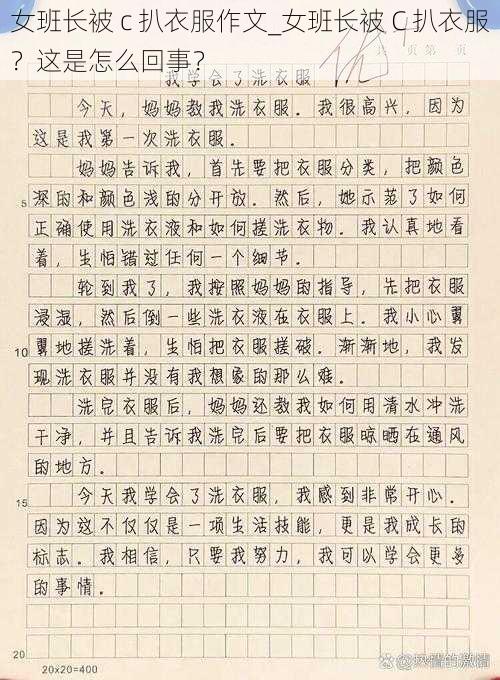 女班长被 c 扒衣服作文_女班长被 C 扒衣服
？这是怎么回事？
优
共 页 第 页
我学会了洗衣服
今天，妈妈教我洗衣服。我很高兴，因为
这是我第一次洗衣服。
妈妈告诉我，首先要把衣服分类，把颜色
5 深的和颜色浅的分开放。然后，她示范了如何
正确使用洗衣液和如何搓洗衣物。我认真地看
着，生怕错过任何一个细节。
轮到我了，我按照妈妈的指导，先把衣服
浸湿，然后倒一些洗衣液在衣服上。我小心翼
10 翼地搓洗着，生怕把衣服搓破。渐渐地，我发
现洗衣服并没有我想象的那么难。
洗完衣服后，妈妈还教我如何用清水冲洗
干净，并且告诉我洗完后要把衣服晾晒在通风
的地方。
15 今天我学会了洗衣服，我感到非常开心。
因为这不仅仅是一项生活技能，更是我成长的
标志。我相信，只要我努力，我可以学会更多
的事情。
20
20×20=400